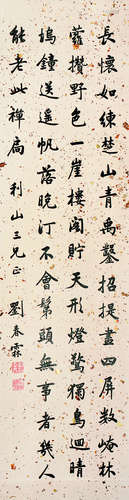 長懷如練楚山青禹鑿招提畫四屏數崦林
蘿攢野色一崖樓閣貯天形燈驚獨鳥迴晴
塢鐘送遥帆落晩汀不會髠頭無事者幾人
能老此禪扃 利山三兄正 劉春霖